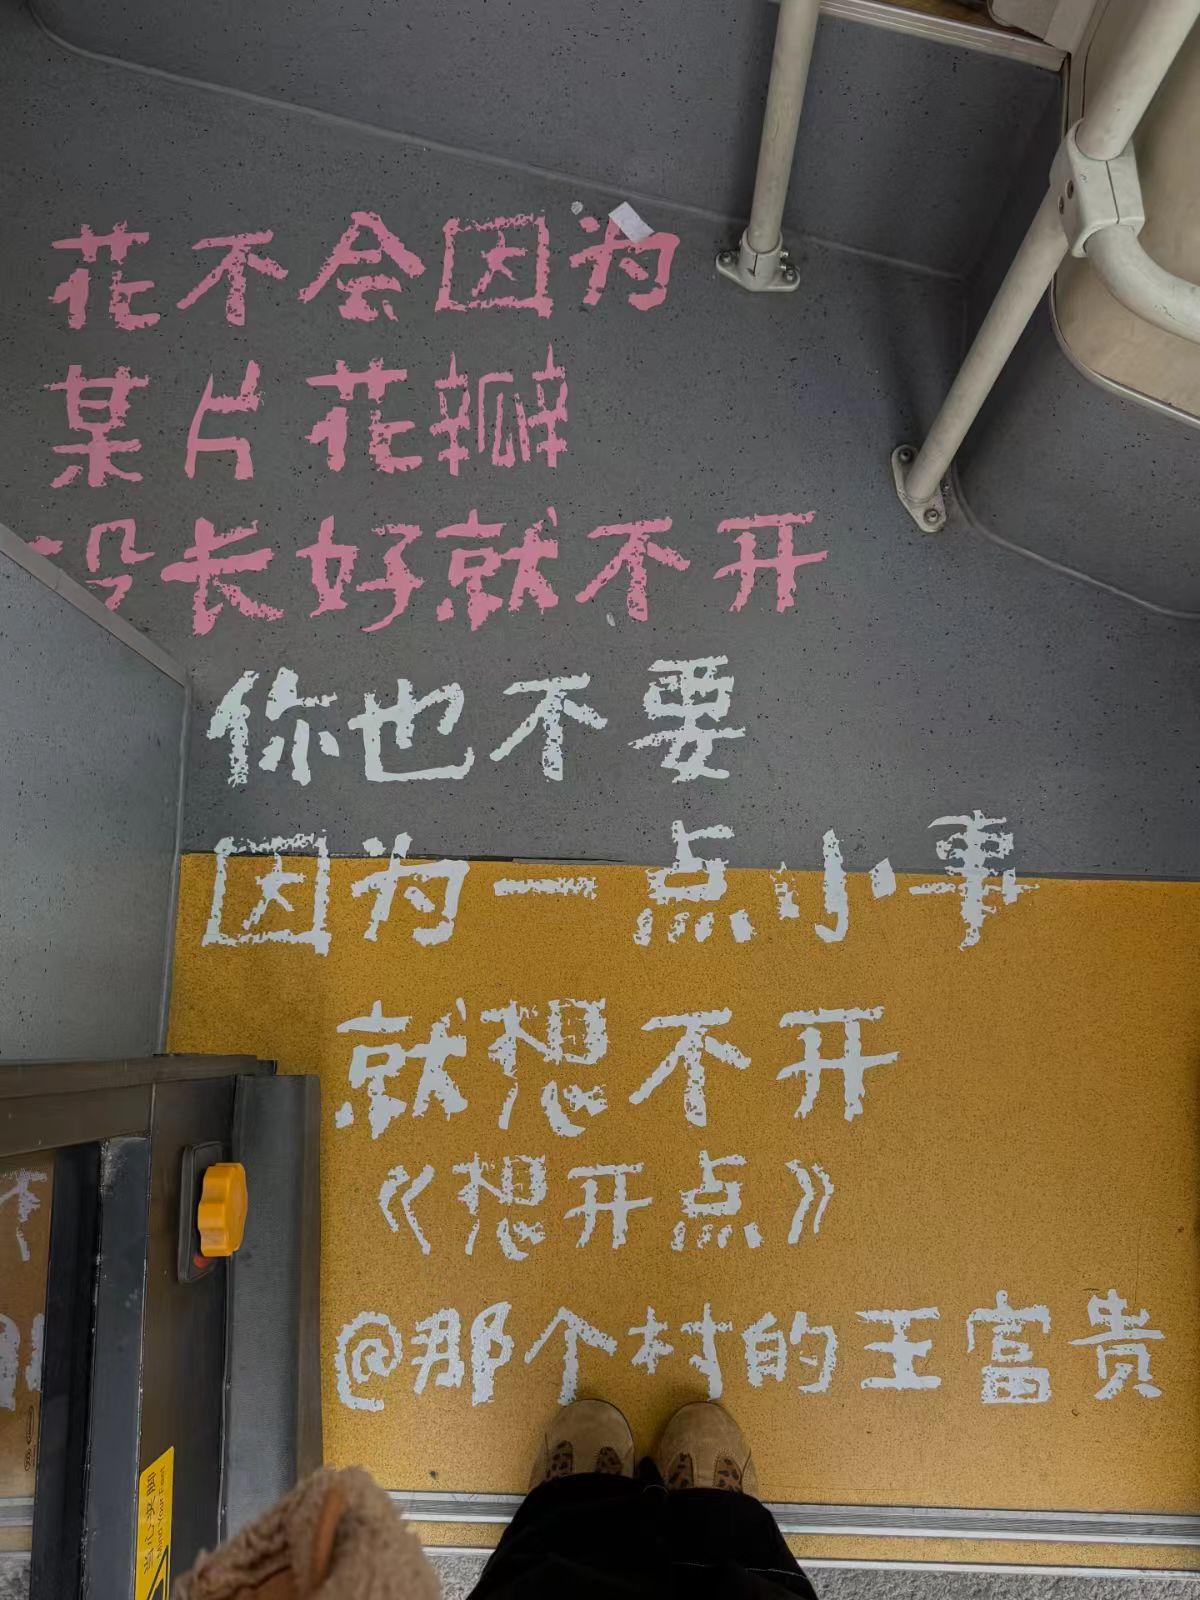 花不会因为
某片花瓣
没长好就不开
你也不要
因为一点小事
就想不开
《想开点》
@那个村的王富贵
当心夹脚
Mind Your Feet